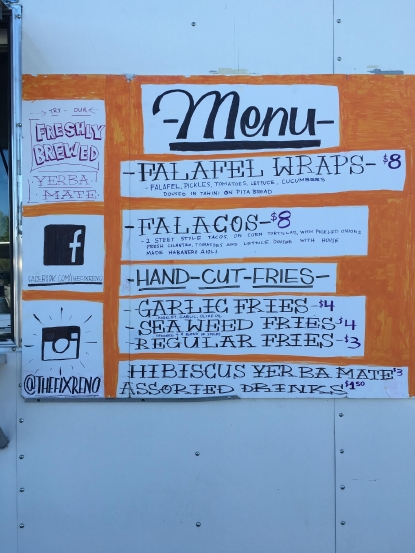 TRY OUR
FRESHLY
BREWED
YERBA
MATE
FACEBOOK.COM/THEFIXRENO
@THEFIXRENO
-Menu-
-FALAFEL WRAPS- $8
- FALAFEL, PICKLES, TOMATOES, LETTUCE, CUCUMBERS
DOUSED IN TAHINI ON PITA BREAD
-FALACOS- $8
- 2 STREET STYLE TACOS ON CORN TORTILLAS, WITH PICKLED ONIONS
FRESH CILANTRO, TOMATOES AND LETTUCE DOUSED WITH HOUSE
MADE HABANERO AIOLI
-HAND-CUT-FRIES-
-GARLIC FRIES-$4
-SEAWEED FRIES $4
-REGULAR FRIES-$3
HIBISCUS YERBA MATE $3
ASSORTED DRINKS $1.50